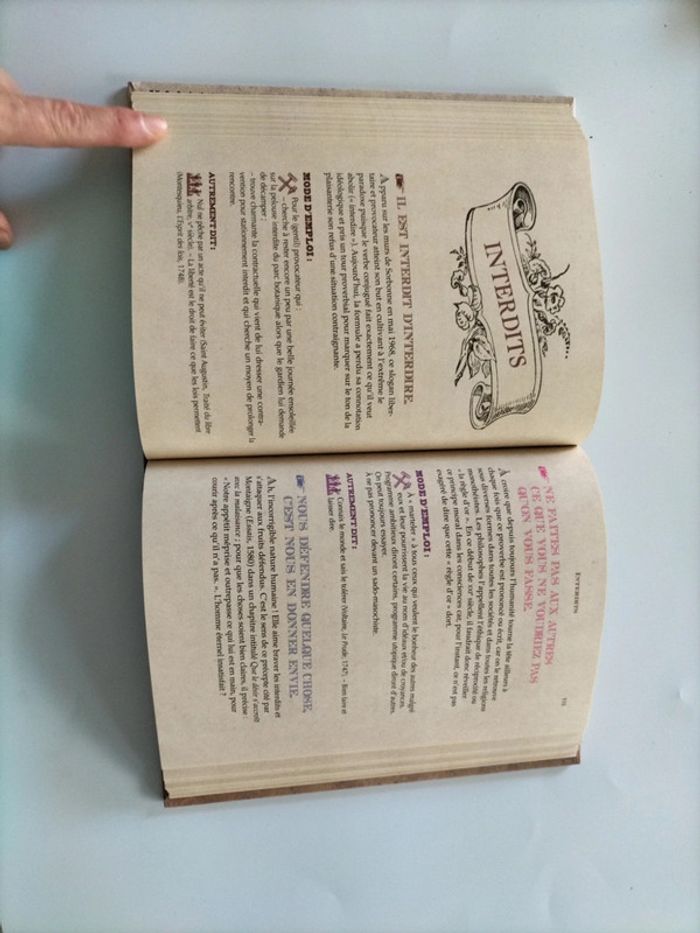 INTERDITS
IL EST INTERDIT D'INTERDIRE.
Apparu sur les murs de Sorbonne en mai 1968, ce slogan liber-
taire et provocateur atteint son but en cultivant à l'extrême le
paradoxe puisque le verbe conjugué fait exactement ce qu'il veut
abolir (« interdire »). Aujourd'hui, la formule a perdu sa connotation
idéologique et pris un tour proverbial pour marquer sur le ton de la
plaisanterie son refus d'une situation contraignante.
MODE D'EMPLOI :
Pour le (gentil) provocateur qui :
– cherche à rester encore un peu par une belle journée ensoleillée
sur la pelouse interdite du parc botanique alors que le gardien lui demande
de décamper ;
– trouve charmante la contractuelle qui vient de lui dresser une contra-
vention pour stationnement interdit et qui cherche un moyen de prolonger la
rencontre.
AUTREMENT DIT :
Nul ne pèche par un acte qu'il ne peut éviter (Saint Augustin, Traité du libre
arbitre, Vᵉ siècle). – La liberté est le droit de faire ce que les lois permettent
(Montesquieu, L'Esprit des lois, 1748).
INTERDITS
NE FAITES PAS AUX AUTRES
CE QUE VOUS NE VOUDRIEZ PAS
QU'ON VOUS FASSE.
À croire que depuis toujours l'humanité tourne la tête ailleurs à
chaque fois que ce proverbe est prononcé ou écrit, car on le retrouve
sous diverses formes dans toutes les sociétés et dans toutes les religions
monothéistes. Les philosophes l'appellent l'éthique de réciprocité ou
« la règle d'or ». En ce début de XXIᵉ siècle, il faudrait donc réveiller
ce principe moral dans les consciences car, pour l'instant, ce n'est pas
exagéré de dire que cette « règle d'or » dort.
MODE D'EMPLOI :
À « marteler » à tous ceux qui veulent le bonheur des autres malgré
eux et leur pourrissent la vie au nom d'idéaux et/ou de croyances.
Programme ambitieux diront certains, programme utopique diront d'autres.
On peut toujours essayer.
À ne pas prononcer devant un sado-masochiste.
AUTREMENT DIT :
Connais le monde et sais le tolérer (Voltaire, La Prude, 1747). – Bien faire et
laisser dire.
NOUS DÉFENDRE QUELQUE CHOSE,
C'EST NOUS EN DONNER ENVIE.
Ah, l'incorrigible nature humaine ! Elle aime braver les interdits et
s'attaquer aux fruits défendus. C'est le sens de ce précepte cité par
Montaigne (Essais, 1580) dans un chapitre intitulé Que le désir s'accroît
avec la malaisance ; pour que les choses soient bien claires, il précise :
« Notre appétit méprise et outrepasse ce qui lui est en main, pour
courir après ce qu'il n'a pas. ». L'homme éternel insatisfait ?